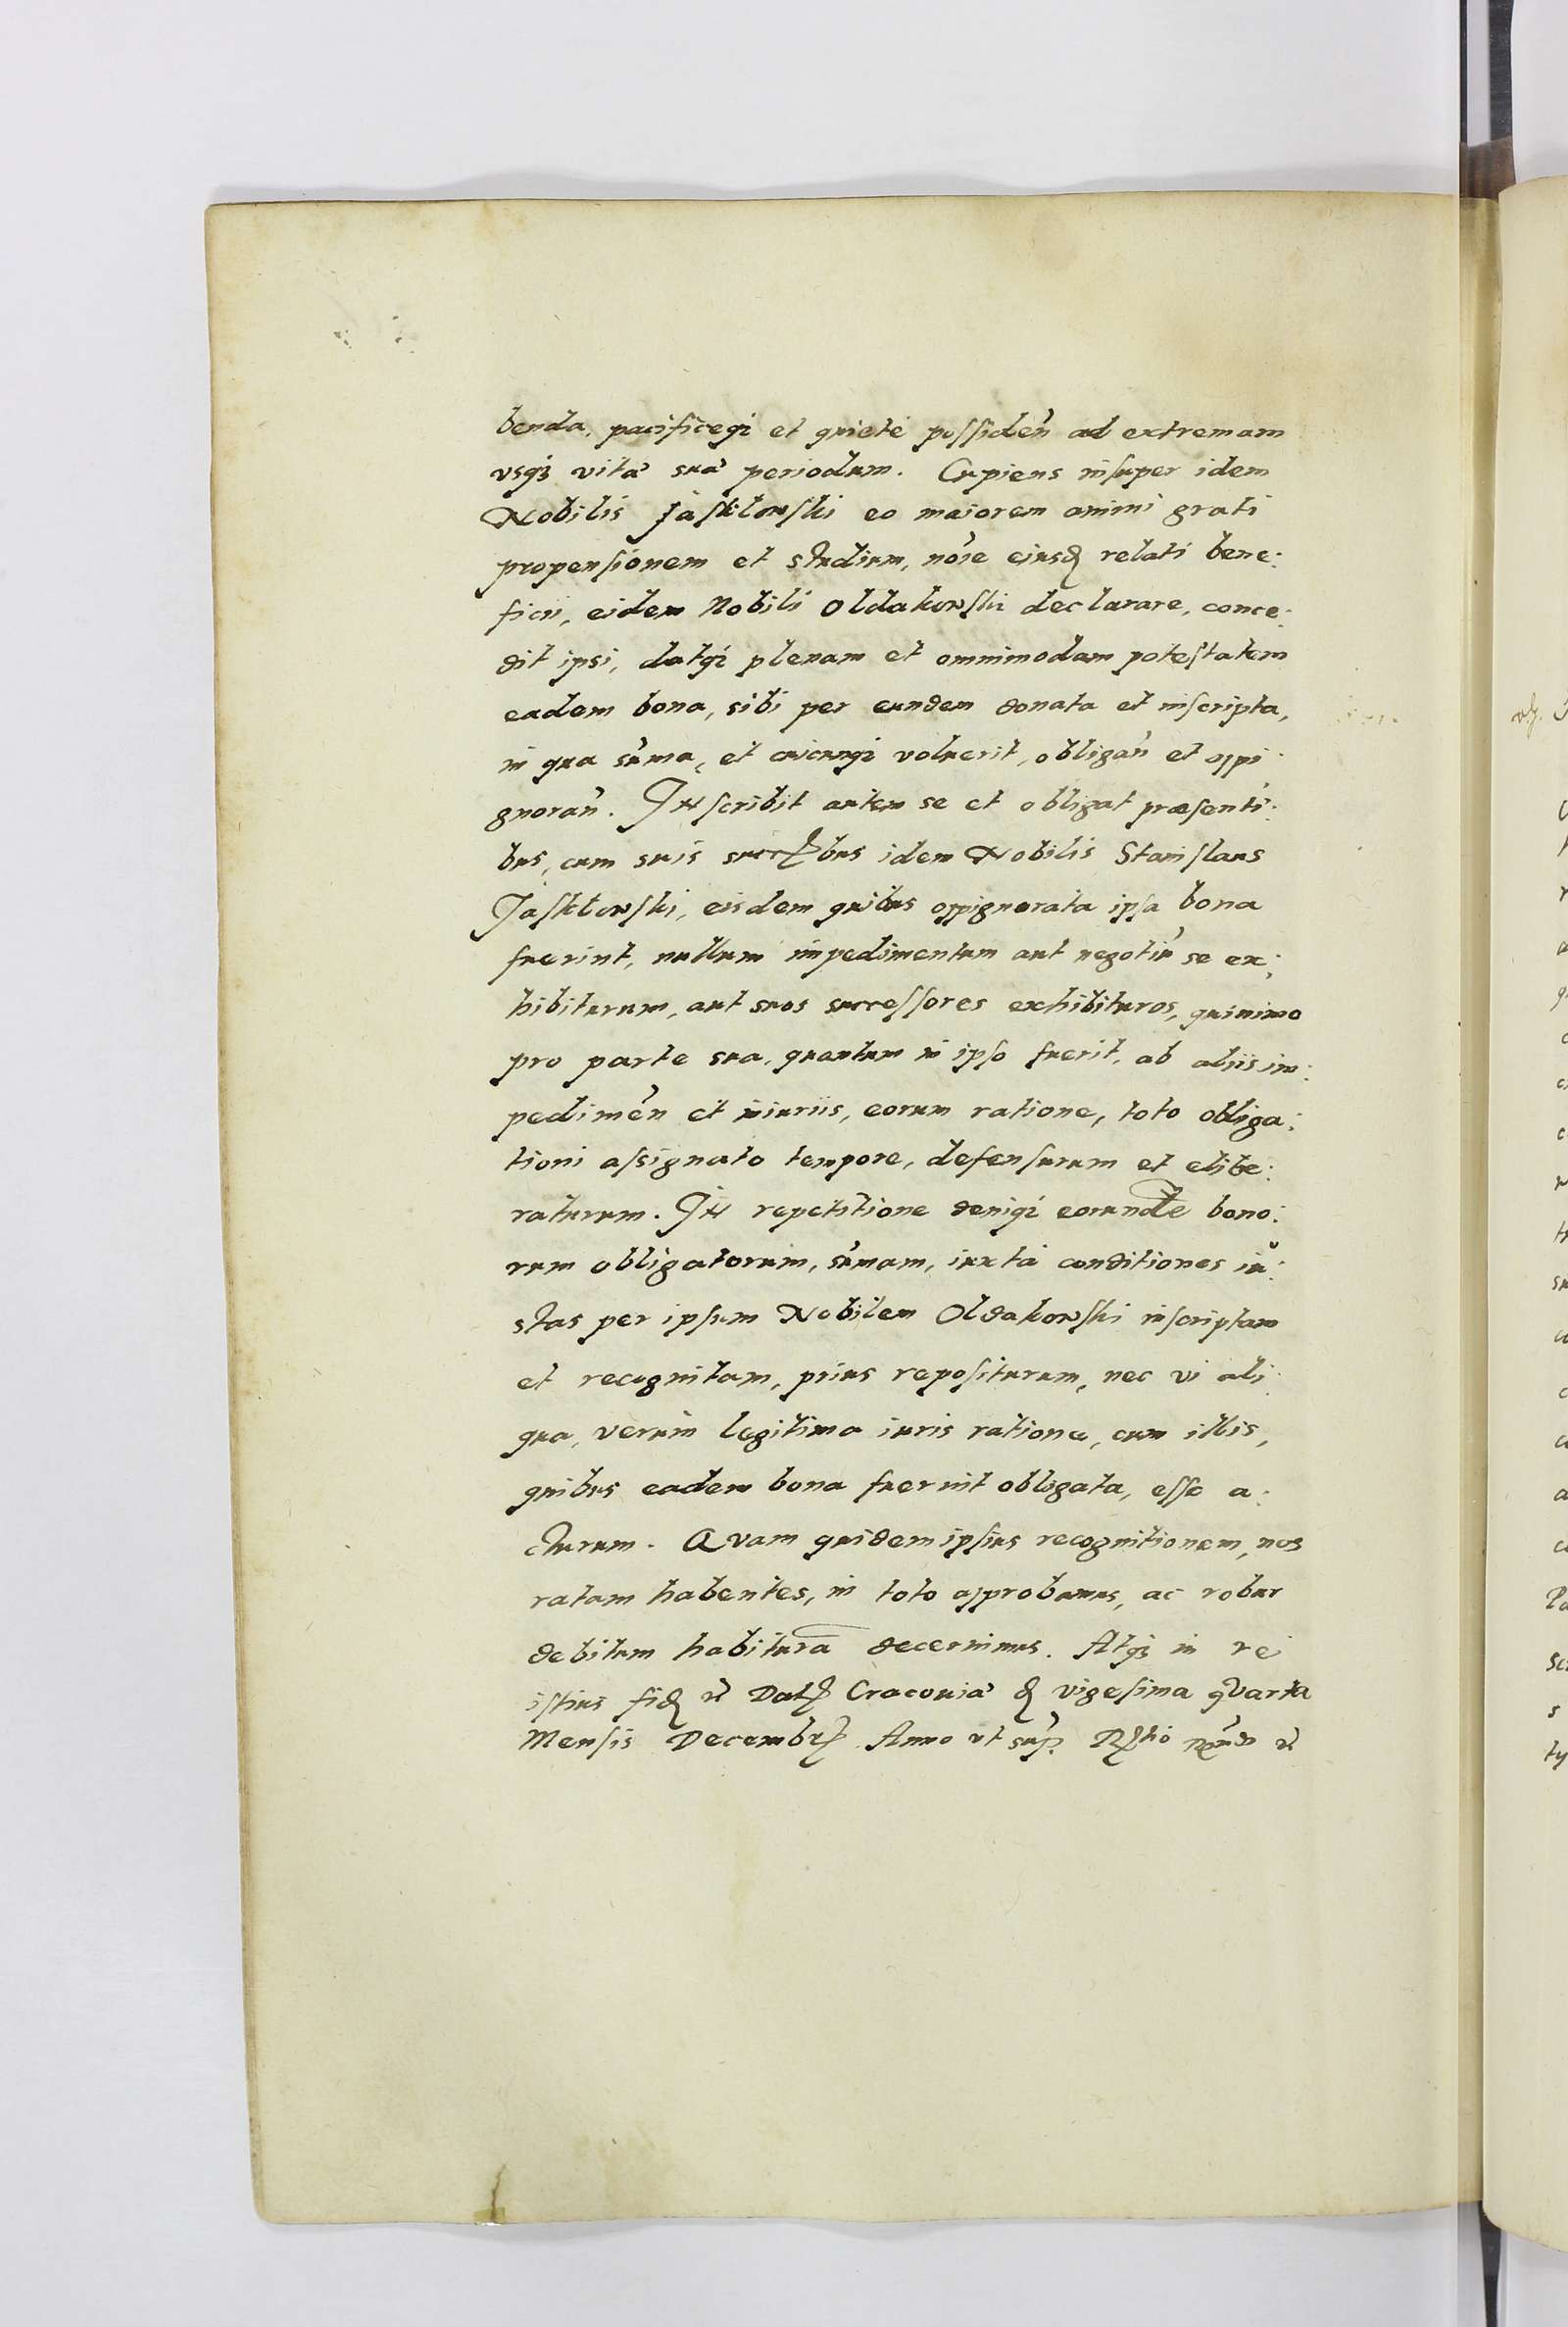 benda, pacificeqz et quiete possiden̄ ad extremam
vsqz vitæ suæ periodum. Cupiens insuper idem
Nobilis Jasklowski eo maiorem animi grati
propensionem et studium, noīe eiusd relati bene:
ficii, eidem Nobili Oldakowski declarare, conce:
dit ipsi, datqz plenam et omnimodam potestatem
eadem bona, sibi per eundem donata et inscripta,
in qua sūma, et cuicunqz voluerit, obligan̄ et oppi
gnoran̄. Inscribit autem se et obligat præsenti:
bus, cum suis idem Nobilis Stanislaus
Jasklowski, eisdem quibus oppignorata ipsa bona
fuerint, nullum impedimentum aut negotiū se ex:
hibiturum, aut suos successores exhibituros, quinimo
pro parte sua, quantum in ipso fuerit, ab aliis im:
pedimen̄ et iniuriis, eorum ratione, toto obliga:
tioni assignato tempore, defensurum et elibe:
raturum. In repetitione deniqz eorunde bono:
rum obligatorum, sūmam, iuxta conditiones iu:
stas per ipsum Nobilem Oldakowski inscriptam
et recognitam, prius repositurum, nec vi ali:
qua, verum legitima iuris ratione, cum illis,
quibus eadem bona fuerint obligata, esse a:
cturum. Quam quidem ipsius recognitionem, nos
ratam habentes, in toto approbamus, ac robur
debitum habiturā decernimus. Atqz in rei
istius fid Dat Cracouiæ d vigesima quarta
Mensis Decembr Anno ut sup